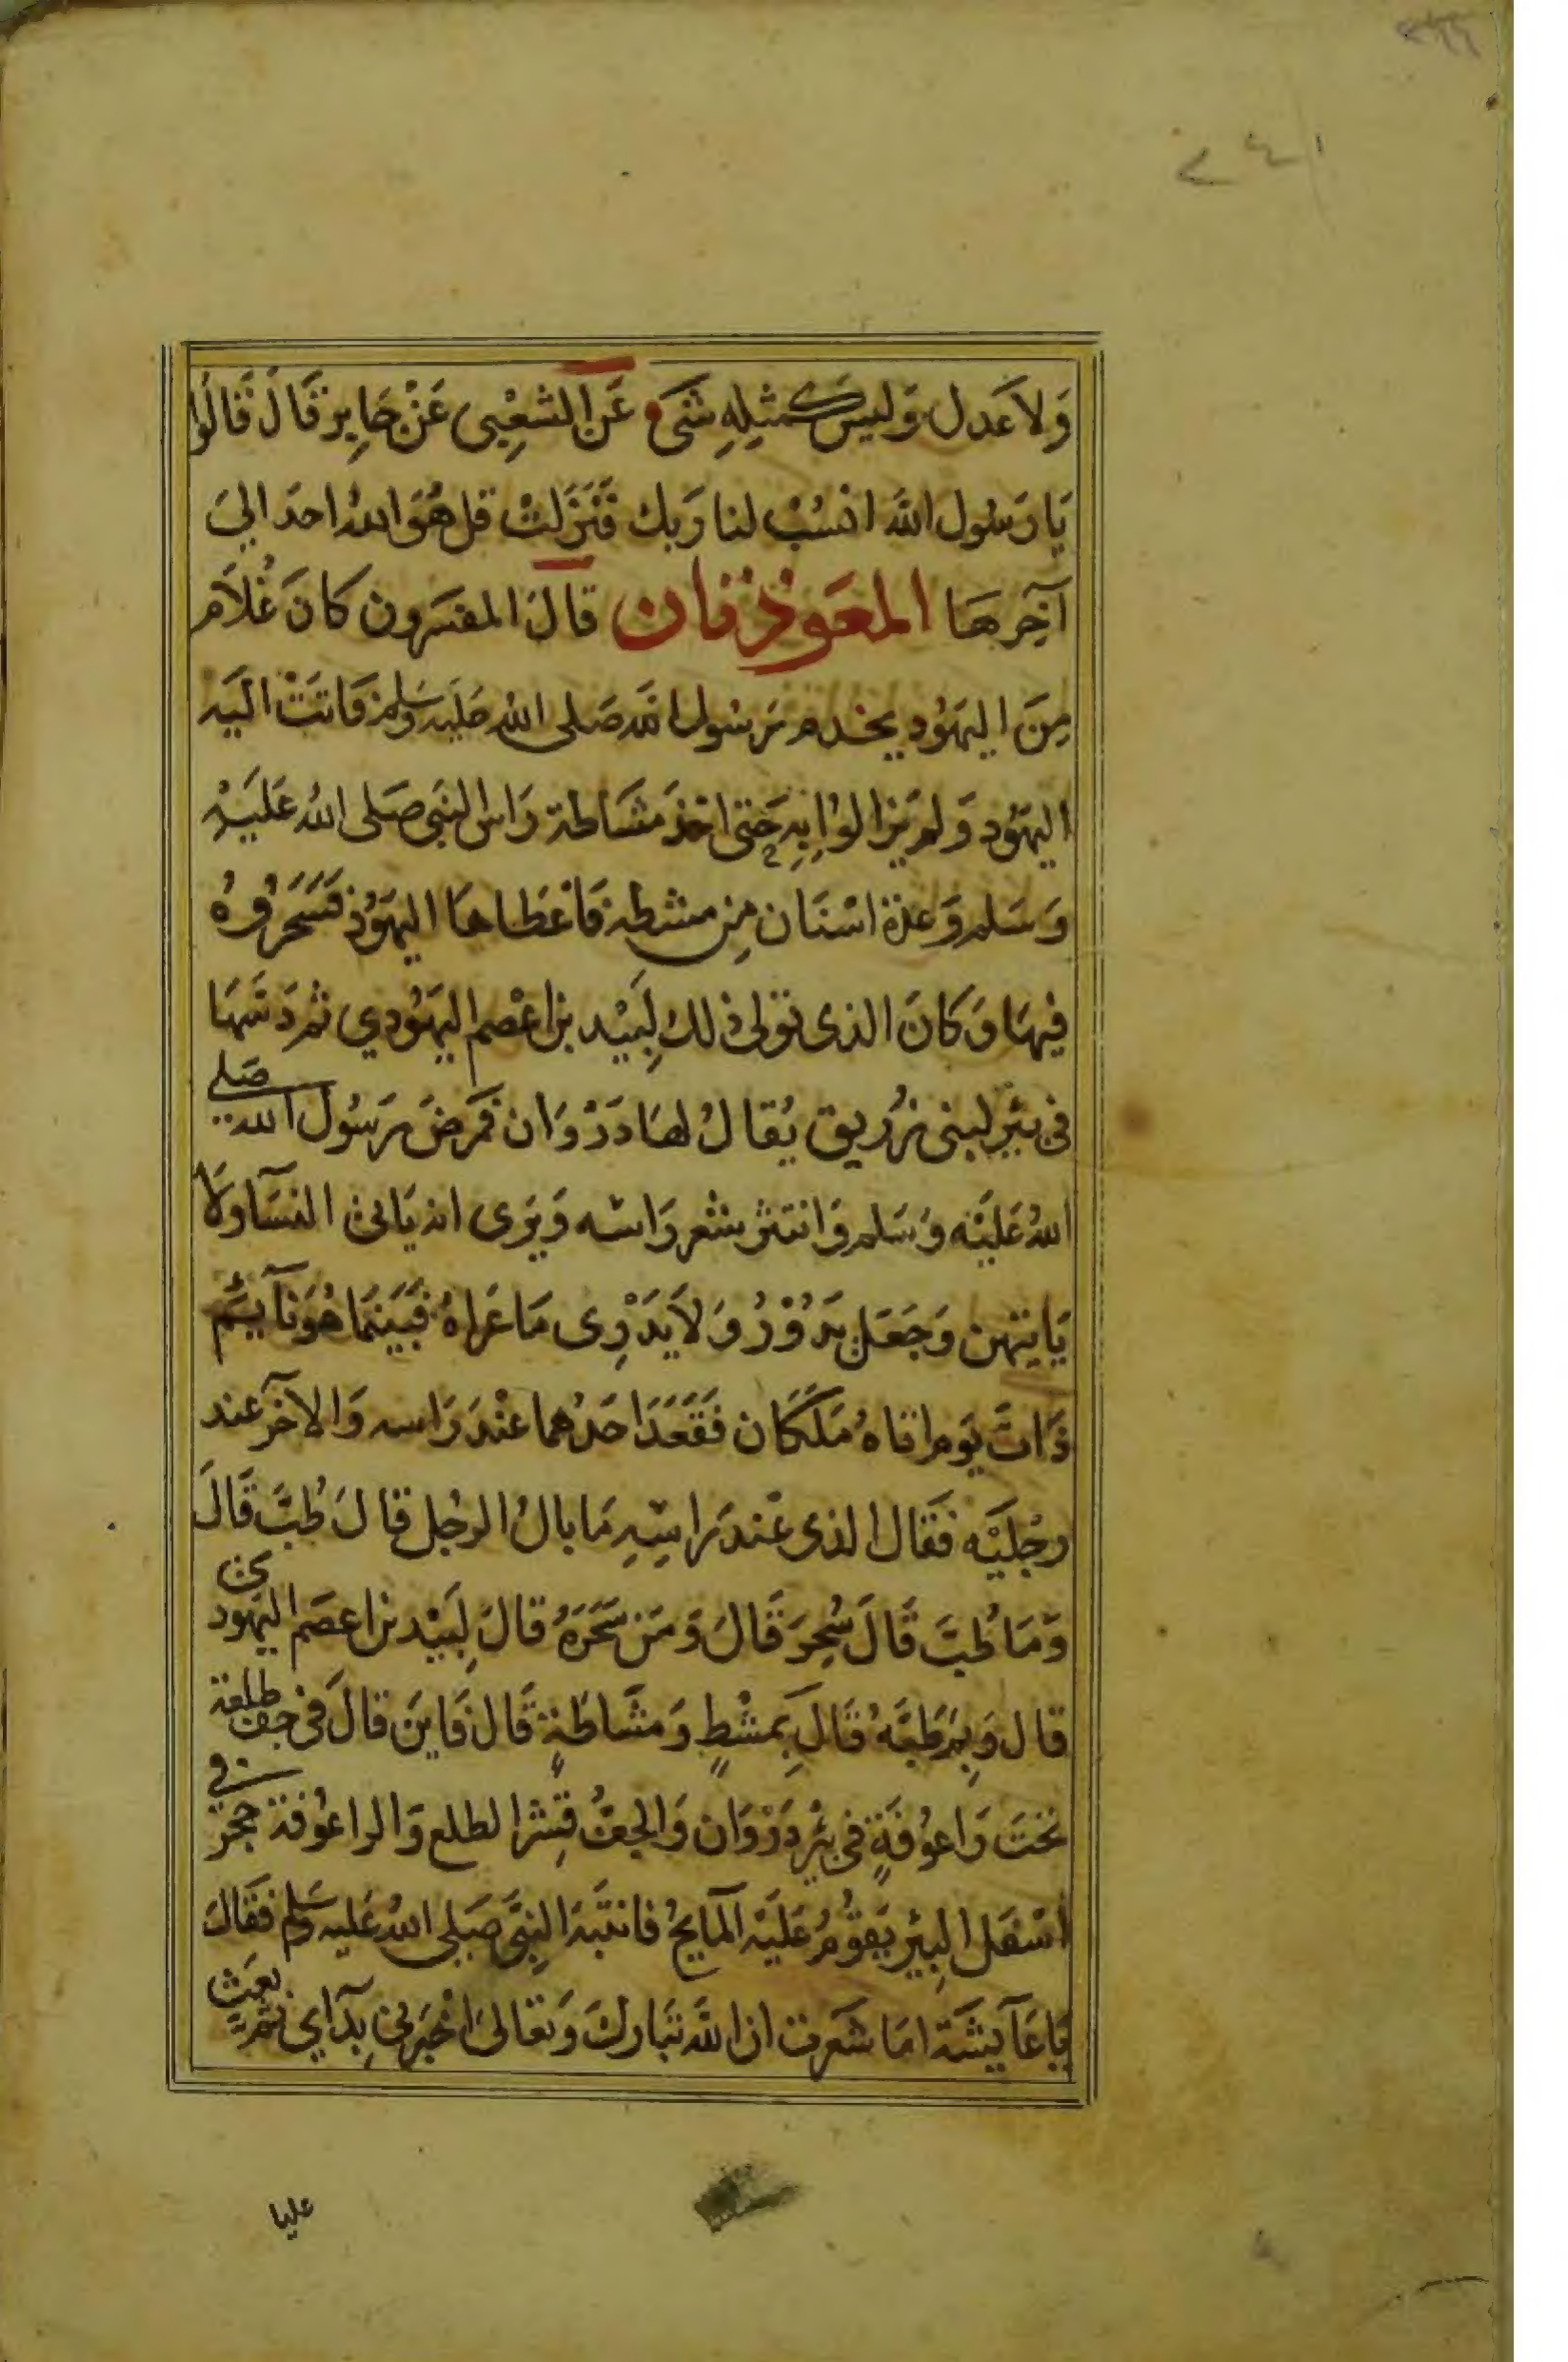 وَلاَ عَدل وَليسَ كَمثلِهِ شئ عَن الشعِبى عَنْ جَابِر قَالَ قَالُوا
يَا رَسُول اللَّه انسُبْ لنا رَبك فَنَزَلتْ قل هُوَ اللهُ احَد الىَ
آخِرهَا المعَوذتان قالَ المفسّرون كانَ غُلاَم
مِنَ اليهَوُد يخدم رَسُول الله صَلى الله عَليه وسَلم فَاتتْ اليَه
اليهَوُد وَلم يَزالوُا بِهِ حَتى اخذ مشَاطة رَاس النبَى صَلى اللهُ عَليَهْ
وَسَلم وَعدة اسْنَان مِن مشطه فَاعْطاهَا اليهَوُد فَسَحَرُوُهُ
فيهَا وَكَانَ الذى تولى ذلك لِبَيْد بن اعْصم اليهَوُدي ثم دَسَّهَا
فى بئِر لبنى زُرَيق يُقالُ لهَا ذرْوَان فمَرضَ رَسُول الله صَلى
اللهُ عَليَه وَسَلم وَانتثر شعر رَاسه وَيَرَى انه يَاتى النسَآ وَلاَ
يَاتيهن وَجَعَل يَدوُرُ وَلاَ يَدْرِى مَا عَراهُ فَبَينَما هُوَ نآيَم
ذَاتَ يَوم اتاهُ مَلَكَان فَقَعَدَ احَدُهما عنْدَ رَاسه وَالاخَر عند
رجْليَه فَقَال الذى عنَد رَاسِهِ مَا بالُ الرجُل قالَ طُبَّ قَالَ
وَمَا طُبَّ قَالَ سُحِرَ قَالَ وَمَن سَحَرَهُ قالَ لِبَيْد بن اعصَم اليهَودى
قال وَبِمَ طَبَّهُ قَال بِمشْطٍ وَمشَاطَةٍ قَال فَاينَ قالَ فى جف طلعة
تحَتَ رَاعوُفَةٍ فى بئر ذرْوَان وَالجفُّ قِشر الطلع وَالراعوُفة حجر فى
اسْفَل البِئر يَقوُمُ عَليَه المآيحُ فانتَبَه النِبَّى صَلى اللهُ عَليه وسَلم فَقَالَ
يَا عَآيشَة امَا شَعَرت ان اللَّه تبَاركَ وَتعَالىَ اخْبَرنى بِدآاي ثم بعَث
عليا